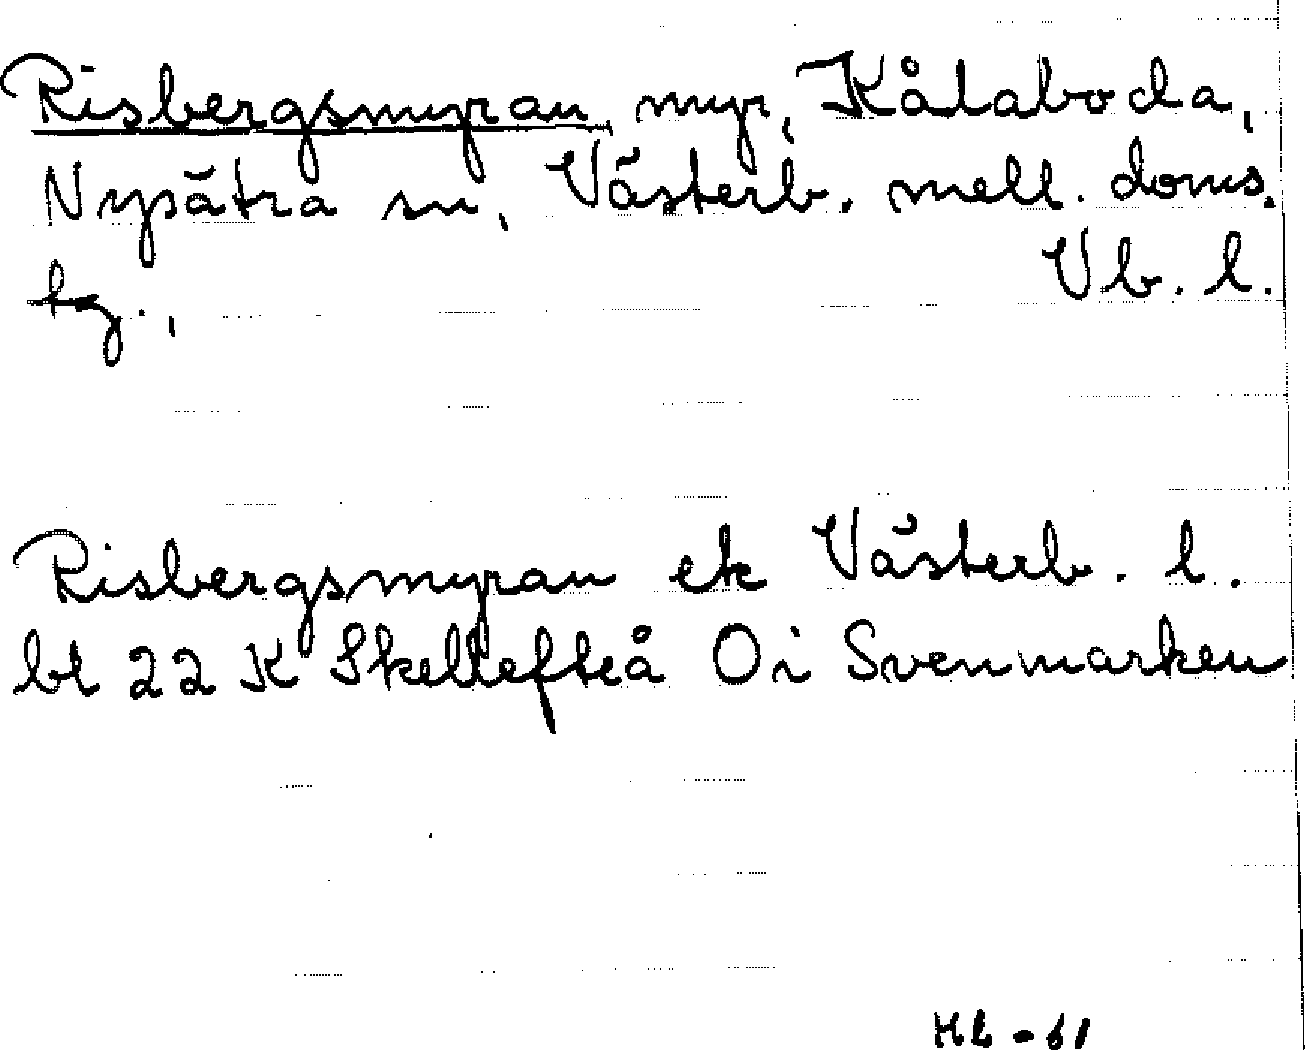 Risbergsmyran, myr, Kålaboda,
Nysätra sn, Västerb. mell. doms.
tg., Vb. l.
Risbergsmyran ek Västerb. l.
bl 22 K Skellefteå Oi Svenmarken
HL - 61